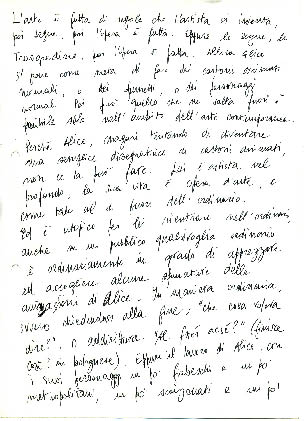 L'arte è fatta di regole che l'artista si inventa,
poi segue, poi l'opera è fatta. Oppure le segue, le
trasgredisce, poi l'opera è fatta. Allora Alice
si pone come meta di fare dei cartoni animati
normali, o dei fumetti, o dei personaggi
normali. Poi però quello che ne salta fuori è
plausibile solo nell'ambito dell'arte contemporanea.
Perché Alice, magari tentando di diventare
una semplice disegnatrice di cartoni animati,
non ce la può fare. Lei è artista nel
profondo, la sua vita è opera d'arte, e
come tale sta fuori dall'ordinario.
Ed è utopico per lei rientrare nell'ordinario,
anche se un pubblico qualsivoglia ordinario
è ordinariamente in grado di apprezzare
ed accogliere alcune sfumature delle
immagini di Alice. In maniera ordinaria,
visione chiedendosi alla fine: "che cosa voleva
dire?", o addirittura "Mo fròt acsé?" (finisce
così? in bolognese). Eppure il lavoro di Alice, con
i suoi personaggi un po' fiabeschi e un po'
metropolitani, un po' scoppiati e un po'